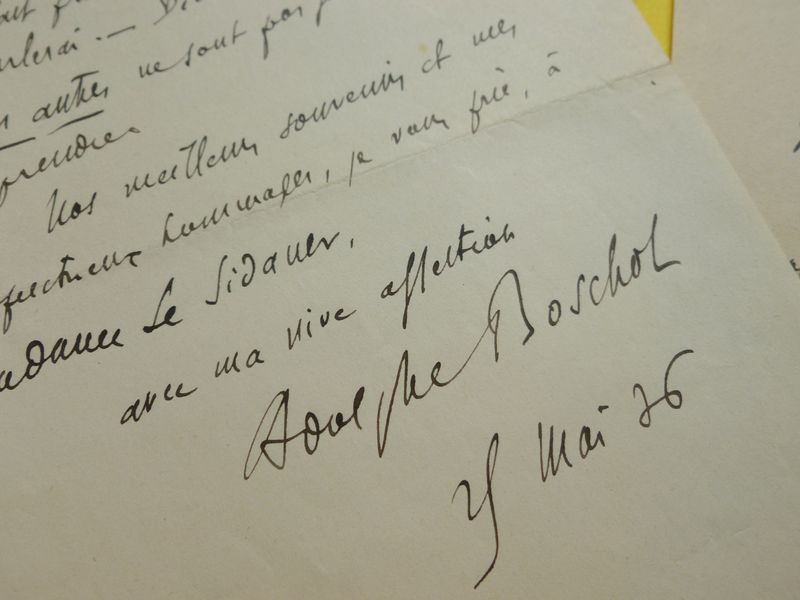 autres ne sont pas
prendre
Nos meilleurs souvenirs et mes
affectueux hommages, je vous prie, à
Madame Le Sidaner,
avec ma vive affection
Adolphe Boschot
25 Mai 36